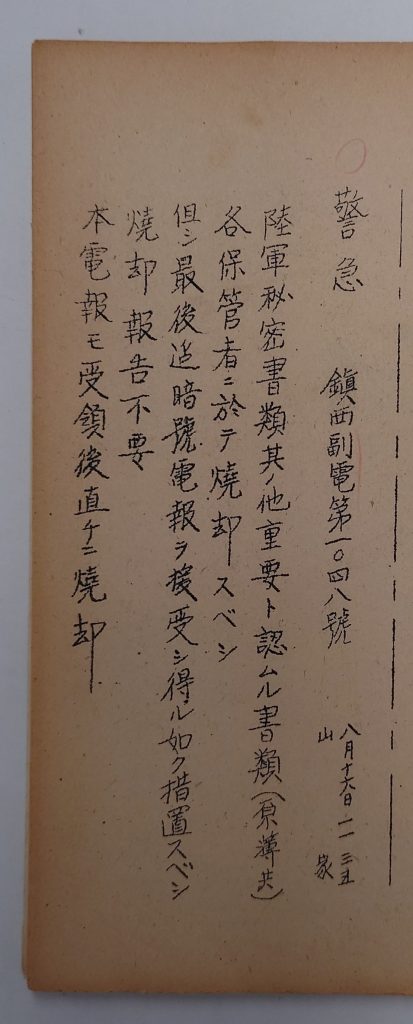 警急
鎭西副電第一〇四八號
八月十六日 一一三五
山家
陸軍秘密書類其ノ他重要ト認ムル書類(原簿共)
各保管者ニ於テ燒却スベシ
但シ最後迄暗號電報ヲ接受シ得ル如ク措置スベシ
燒却報告不要
本電報モ受領後直チニ燒却